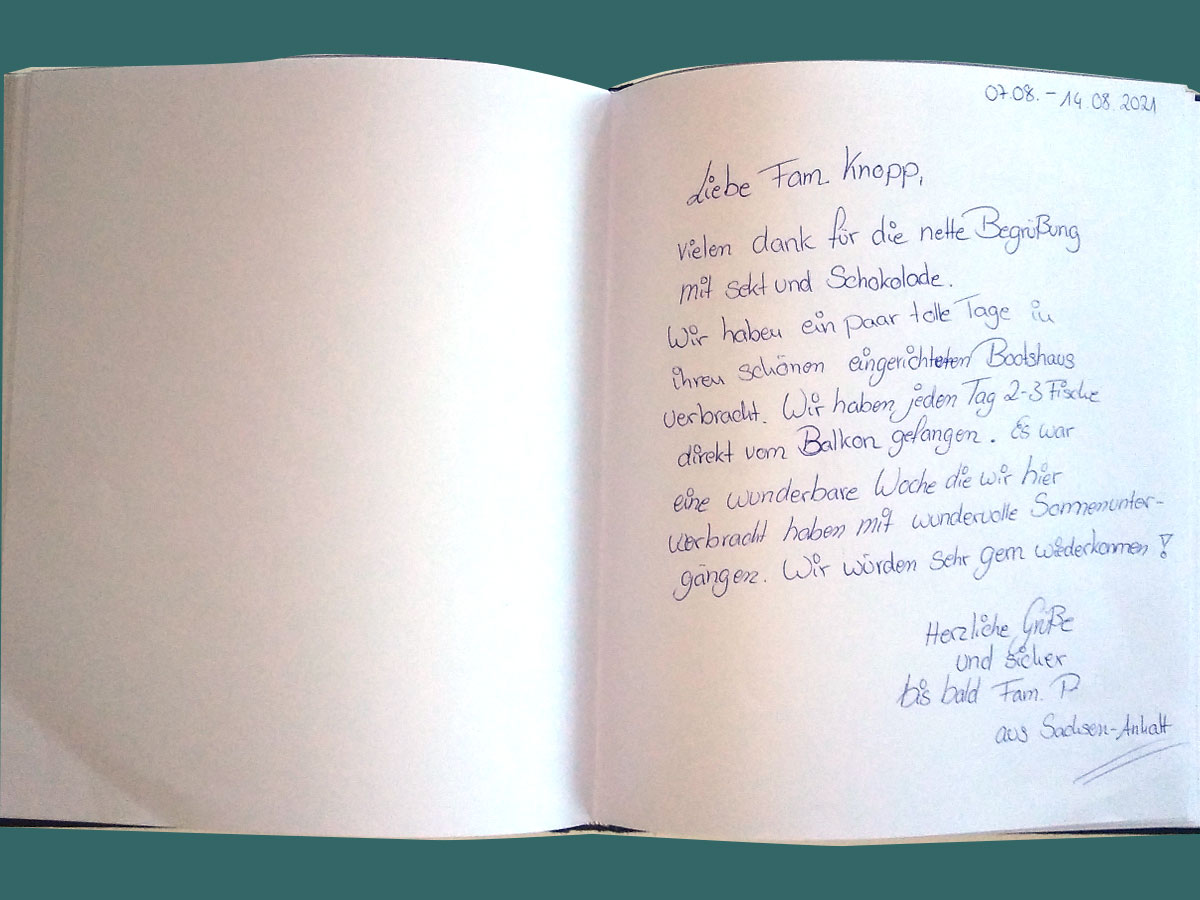 07.08. - 14.08.2021
Liebe Fam Knopp,
vielen dank für die nette Begrüßung
mit Sekt und Schokolade.
Wir haben ein paar tolle Tage in
ihren schönen eingerichteten Bootshaus
verbracht. Wir haben jeden Tag 2-3 Fische
direkt vom Balkon gefangen. Es war
eine wunderbare Woche die wir hier
verbracht haben mit wundervolle Sonnenunter-
gängen. Wir würden sehr gern wiederkommen!
Herzliche Grüße
und sicher
bis bald Fam. P
aus Sachsen-Anhalt